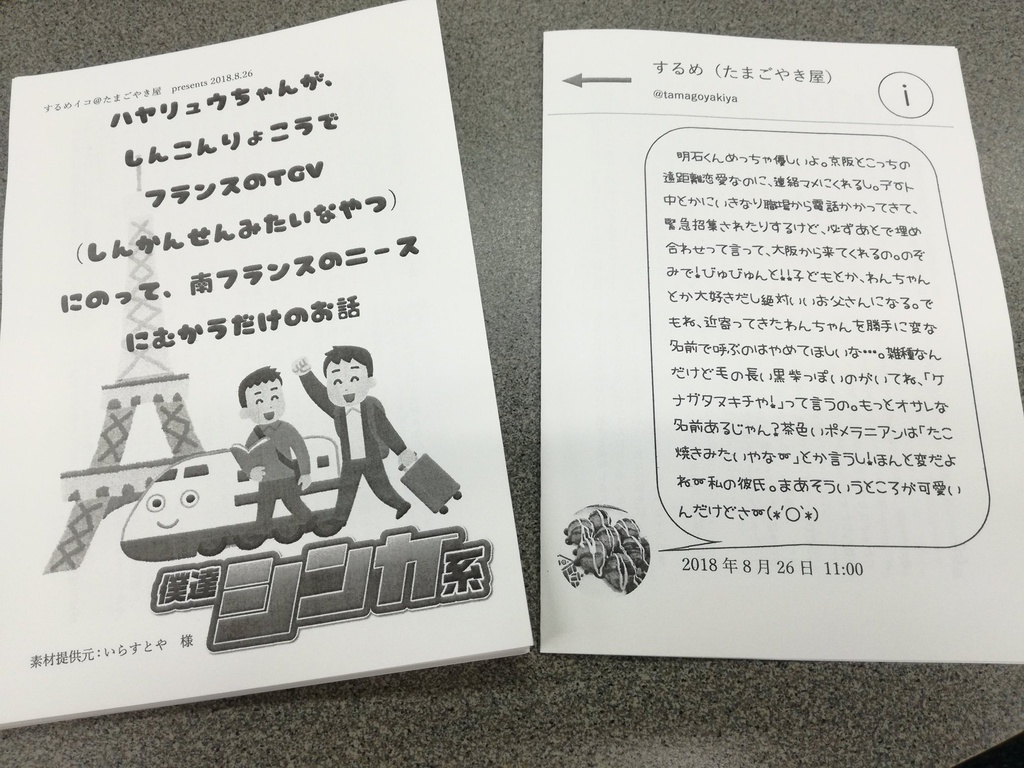 するめイコ@たまごやき屋 presents 2018.8.26
ハヤリュウちゃんが、
しんこんりょこうで
フランスのTGV
（しんかんせんみたいなやつ）
にのって、南フランスのニース
にむかうだけのお話
僕達シンカ系
素材提供元：いらすとや 様
するめ（たまごやき屋）
i
@tamagoyakiya
明石くんめっちゃ優しいよ。京阪とこっちの
遠距離恋愛なのに、連絡マメにくれるし。デート
中とかにいきなり職場から電話かかってきて、
緊急招集されたりするけど、必ずあとで埋め
合わせって言って、大阪から来てくれるの。のぞ
みで！びゅびゅんと！！子どもとか、わんちゃん
とか大好きだし絶対いいお父さんになる。で
もね、近寄ってきたわんちゃんを勝手に変な
名前で呼ぶのはやめてほしいな…。雑種なん
だけど毛の長い黒柴っぽいのがいてね、「ケ
ナガタヌキチや！」って言うの。もっとオサレな
名前あるじゃん？茶色いポメラニアンは「たこ
焼きみたいやな」とか言うし！ほんと変だよ
ね私の彼氏。まあそういうところが可愛い
んだけどさ(*'○'*)
2018 年 8 月 26 日 11:00